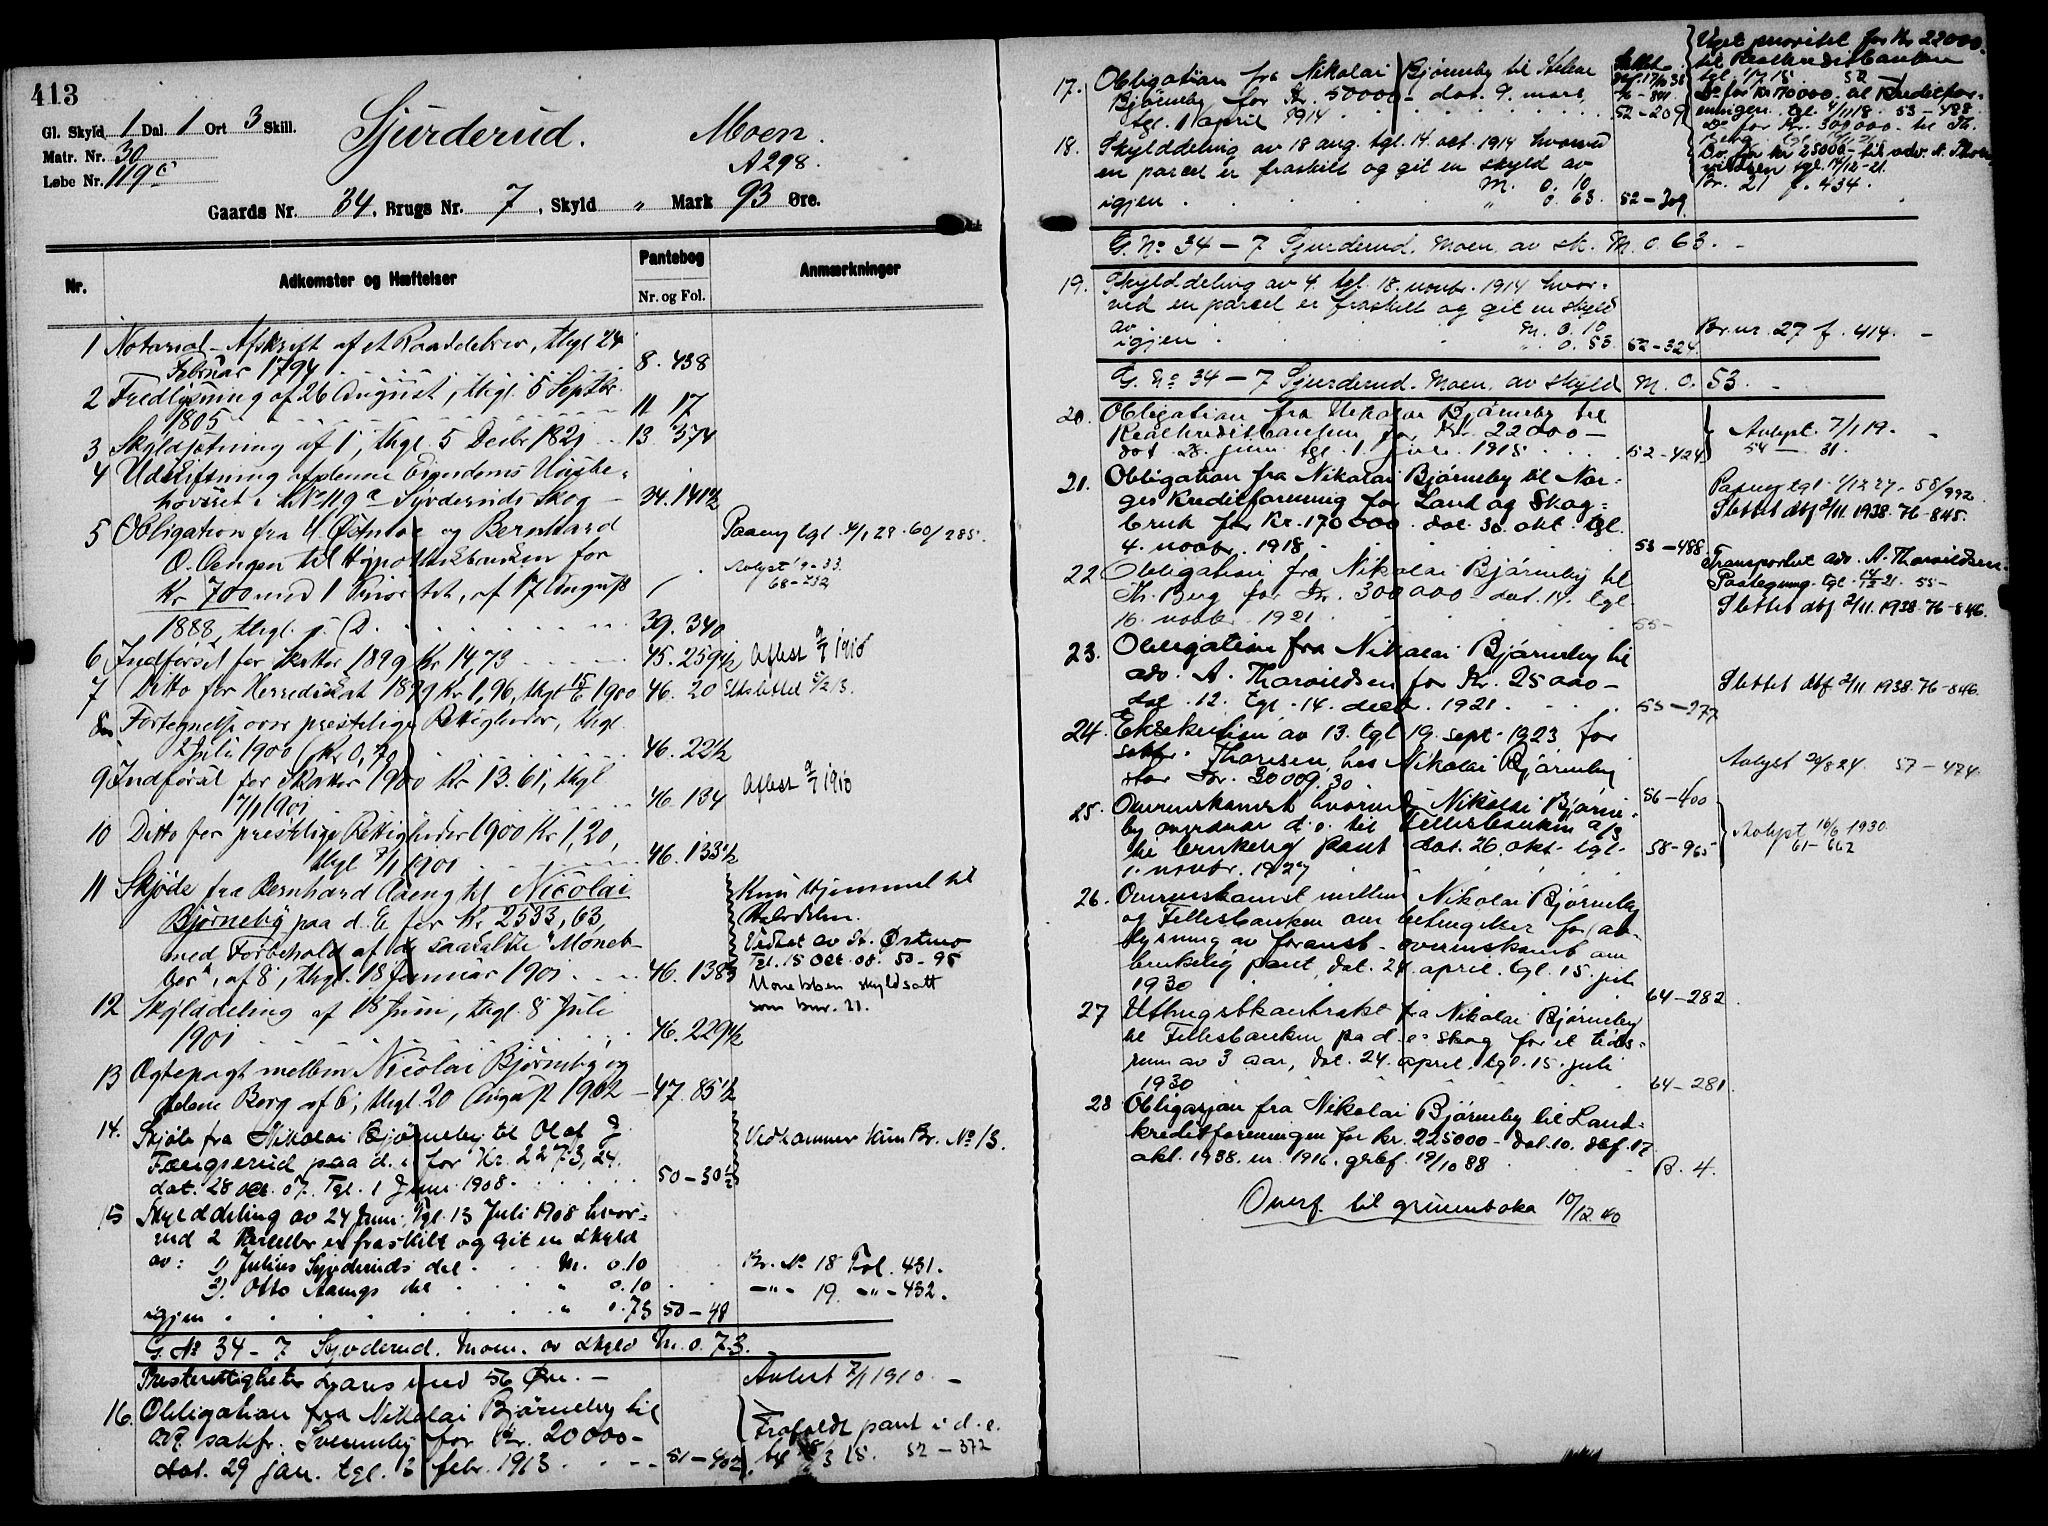 413
Gl. Skyld 1 Dal. 1 Ort 3 Skill.
Matr. Nr. 30
Løbe Nr. 119c
Sjurderud. Moen.
A 298.
Gaards Nr. 34, Brugs Nr. 7, Skyld " Mark 93 Øre.
Nr. Adkomster og Hæftelser Pantebog Anmærkninger
Nr. og Fol.
1 Notarial-Afskrift af et Raaddebrev, thgl 24
Februar 1794 8. 438
2 Fredlysning af 26 August, thgl. 5 Septbr.
1805 11 17
3 Skyldsætning af 1, thgl. 5 Decbr 1821 13 574
4 Udskiftning af denne Eiendoms
i L.No 119a Syverruds Skog 34. 141½
5 Obligation fra H. Østmoe og Bernhard
O. Aengen til Hypothekbanken for
Kr 700 med 1 Prioritet, af 17 August
1888, thgl. s. D. 39. 340
Paany tgl. 4/1 29. 60/285.
Avlyst 33.
68-232
6 Indførsel for Skatter 1899 Kr 14,73 45. 259½ Aflest 9/7 1910
7 Ditto for Herredskat 1899 Kr 1,96, thgl 15/6 1900 46. 20 Utslettet 5/2 13.
8 Fortegnelse over prestelige Rettigheder, thgl.
2 Juli 1900 (Kr 0,70) 46. 22½
9 Indførsel for Skatter 1900 Kr. 13.61, thgl
17/1 1901 46. 134 Aflest 9/7 1910
10 Ditto for prestelige Rettigheder 1900 Kr 1,20,
thgl 7/1 1901 46. 133½
11 Skjøde fra Bernhard Aaeng til Nicolai
Bjørneby paa d. E for Kr. 2533,63,
med Forbehold af de saakaldte "Moneb-
ber", af 8, thgl. 18 Januar 1901 46. 138½
Kun Hjemmel til
Halvdelen.
Vedtat av H. Østmo
Tgl. 15 Oct. 08. 50-95
Monebben skyldsatt
som bnr. 21.
12 Skylddeling af 18 Juni, thgl. 8 Juli
1901 46. 229½
13 Ægtepagt mellem Nicolai Bjørneby og
Helene Berg af 6, thgl. 20 August 1902 47. 85½
14. Skjøte fra Nikolai Bjørneby til Olaf J.
Tængserud paa d. e for Kr. 2273,24.
dat. 28 Oct. 07. Tgl. 1 Juni 1908. 50-30½
Vedkommer kun Br. No 13.
15 Skylddeling av 24 Juni, Tgl. 13 Juli 1908 hvor-
ved 2 Parceller er fraskilt og git en skyld
av: 1) Julius Syverruds del M. 0.10 Br. No 18 Fol. 431.
2) Otto Aaengs del " 0.10 -"- 19. -"- 432.
igjen " 0.73 50-48
G. No 34-7 Syverrud. Moen. av skyld M. 0.73.
Presterettigheter løses med 56 Øre. - Avlest 7/1 1910. -
16. Obligation fra Nikolai Bjørneby til
O.R. sakfr. Svenneby for Kr. 20000-
dat. 29 jan. tgl. 3 febr. 1913. 51-402
Frafaldt pant i d.e.
tgl 3 15. 52-372
17. Obligation fra Nikolai Bjørneby til Helene
Bjørneby for Kr. 50000- dat. 9. mars,
tgl. 1 april 1914 52-209
Slettet
dbf. 17/10 38
76-801
Veget prioritet for Kr 22000.
til Realkreditbanken
tgl. 1/7 15. 52
Do for Kr 170000. til Kreditfor-
eningen. tgl. 4/11 18. 53-488
Do for Kr. 300000. til Th.
Berg
Do. for kr 25000- til adv. A. Thor-
vildsen tgl. 14/12-21.
18. Skylddeling av 18 aug. tgl. 14. oct. 1914 hvorved
en parcel er fraskilt og git en skyld av
M. 0.10 Br. 21 f. 434.
igjen " 0.63. 52-309
G. No 34-7 Sjurderud. Moen. av sk. M. 0.63. -
19. Skylddeling av 4. tgl. 18. novbr. 1914 hvor-
ved en parcel er fraskilt og git en skyld
av M. 0.10 Br.nr. 27 f. 414. -
igjen " 0.53. 52-324
G. No 34-7 Sjurderud. Moen. av skyld M. 0.53. -
20. Obligation fra Nikolai Bjørneby til
Realkreditbanken for Kr. 22000-
dat. 28. juni tgl. 1. juli 1915 52-424
Avlyst. 7/1 19. -
54-31.
21. Obligation fra Nikolai Bjørneby til Nor-
ges Kreditforening for Land og Skog-
bruk for Kr. 170000. dat. 30. okt. tgl.
4. novbr. 1918 53-488
Paany tgl. 1/12 27. 58/992
Slettet dbf 2/11. 1938. 76-845.
22 Obligation fra Nikolai Bjørneby til
Th. Berg for Kr. 300000- dat. 14. tgl.
16. novbr. 1921 55-
Transportert adv. A. Thorvildsen.
Paategning tgl. 14/12-21. 55-
Slettet dbf 2/11. 1938. 76-846.
23. Obligation fra Nikolai Bjørneby til
adv. A. Thorvildsen for Kr. 25000-
dat. 12. tgl. 14. decbr. 1921 55-277
Slettet dbf 2/11 1938. 76-846.
24. Eksekution av 13. tgl 19. sept. 1923 for
sakfr. Thoresen, hos Nikolai Bjørneby
stor Kr. 30009.30 56-400
Avlyst 20/8 24. 57-474.
25. Overenskomst hvorved Nikolai Bjørne-
by overdrar d.e. til Fellesbanken a/s
til brukelig pant dat. 26. okt. tgl.
1. novbr. 1927 58-965
Avlyst 16/6 1930
61-662
26. Overenskomst mellem Nikolai Bjørneby
og Fellesbanken om betingelser for av-
lysning av foranst. overenskomst om
brukelig pant, dat. 24. april. tgl. 15. juli
1930 64-282.
27 Uthugstkontrakt fra Nikolai Bjørneby
til Fellesbanken paa d.e. skog for et tids-
rum av 3 aar, dat. 24. april. tgl. 15. juli
1930 64-281.
28 Obligasjon fra Nikolai Bjørneby til Land-
kreditforeningen for kr. 225000- dat. 10. dbf. 17
okt. 1938. nr. 1916. grbf. 19/10 38 B. 4.
Overf. til grunnboka 10/12 40